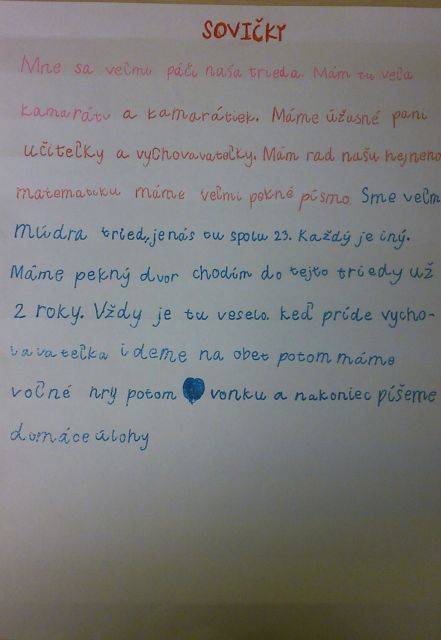 SOVIČKY
Mne sa veľmi páči naša trieda. Mám tu veľa
kamarátv a kamarátiek. Máme úžasné pani
učiteľky a vychovavateľky. Mám rad našu hejneho
matematiku máme veľmi pekné písmo Sme veľm
múdra tried, je nás tu spolu 23. Každý je iný.
Máme pekný dvor chodím do tejto triedy už
2 roky. Vždy je tu veselo. keď príde vycho-
vavateľka ideme na obet potom máme
voľné hry potom vonku a nakoniec píšeme
domáce úlohy